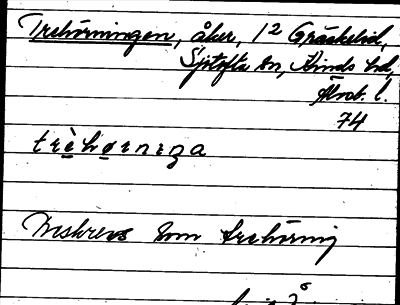 Trehörningen, åker, 12 Gräskelid,
Sjötofta sn, Kinds hd,
Älvsb. l.
74
trèhørnıŋa
Beskrevs som trehörnig